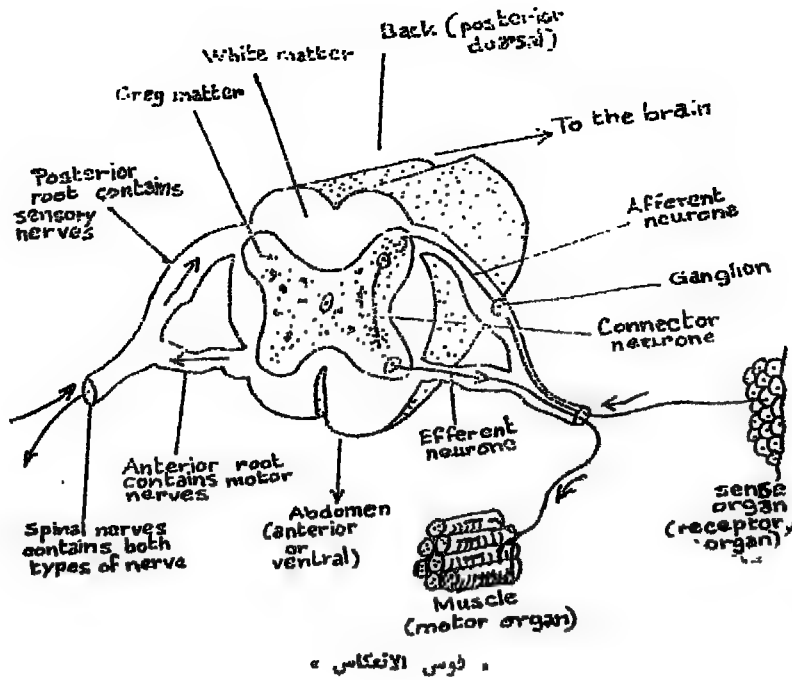 Back (posterior
duorsal)
White matter
Greg matter
To the brain
Posterior
root contains
sensory
nerves
Afferent
neurone
Ganglion
Connector
neurone
Efferent
neurone
Anterior root
contains motor
nerves
Abdomen
(anterior
or
ventral)
Spinal nerves
contains both
types of nerve
sense
organ
(receptor
organ)
Muscle
(motor organ)
« قوس الانعكاس »